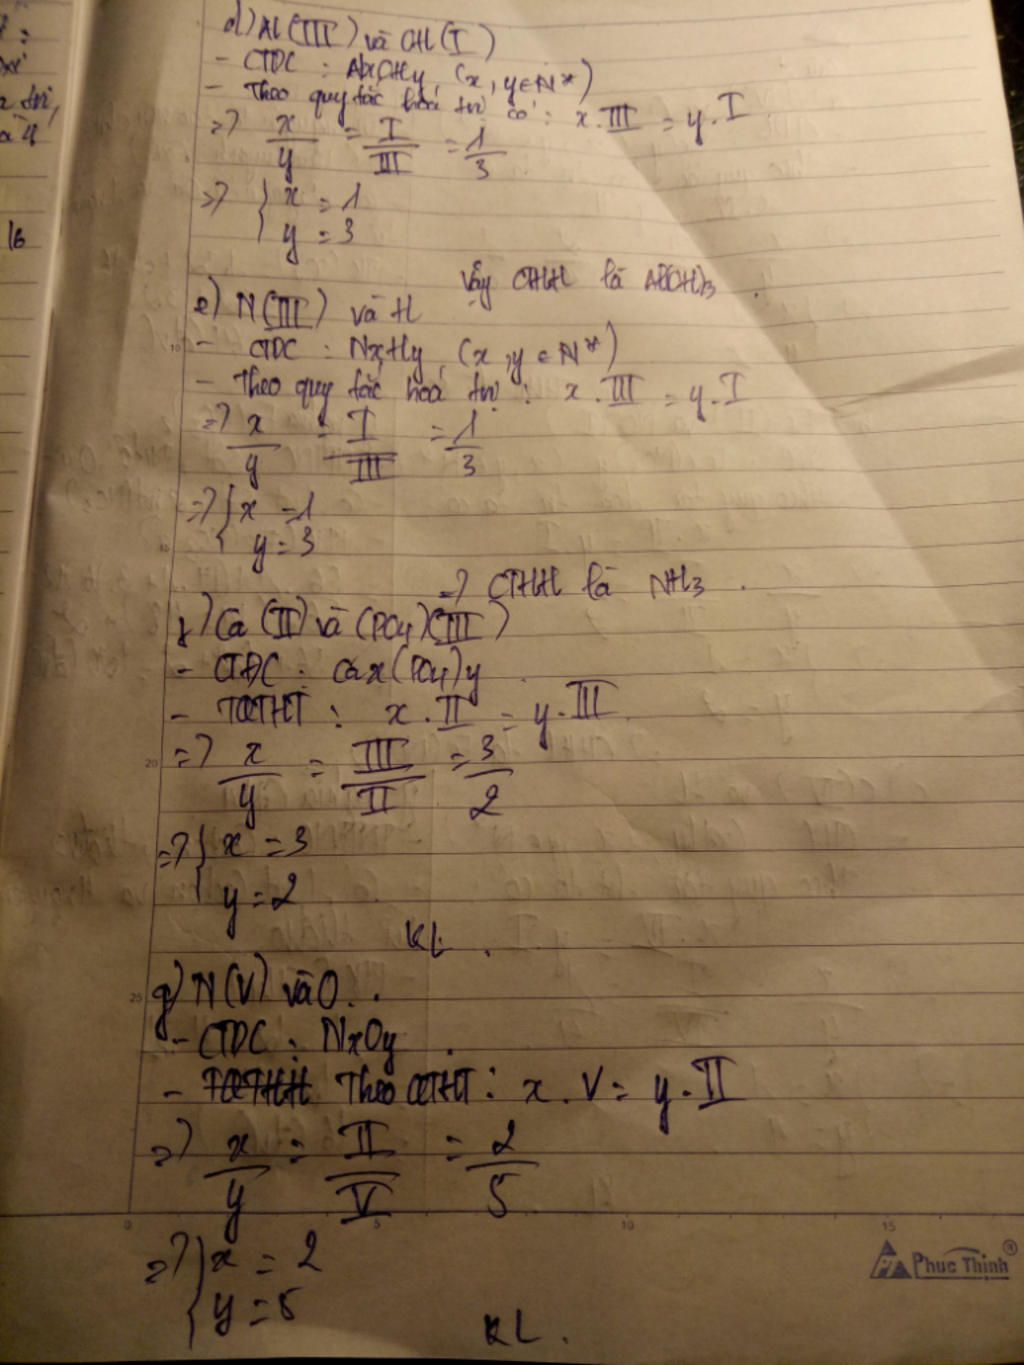 d) Al(III) và OH(I)
- CTDC : AlxOHy (x, y ∈ N*)
- Theo quy tắc hoá trị có : x.III = y.I
=> x/y = I/III = 1/3
=> { x = 1
y = 3
Vậy CTHH là Al(OH)3 .
e) N(III) và H
- CTDC : NxHy (x, y ∈ N*)
- Theo quy tắc hoá trị : x.III = y.I
=> x/y = I/III = 1/3
=> { x = 1
y = 3
=> CTHH là NH3 .
f) Ca (II) và (PO4)(III)
- CTDC : Cax(PO4)y
- TQTHT : x.II = y.III
=> x/y = III/II = 3/2
=> { x = 3
y = 2
KL .
g) N(V) và O . .
- CTDC : NxOy .
- Theo QTHT : x . V = y.II
=> x/y = II/V = 2/5
=> { x = 2
y = 5
KL .
16
10
20
25
0 5 10 15
Phuc Thinh ®